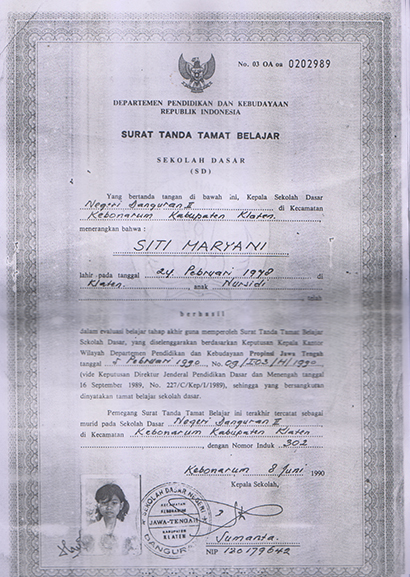 No. 03 OA oa 0202989
DEPARTEMEN PENDIDIKAN DAN KEBUDAYAAN
REPUBLIK INDONESIA
SURAT TANDA TAMAT BELAJAR
SEKOLAH DASAR
(SD)
Yang bertanda tangan di bawah ini, Kepala Sekolah Dasar
Negeri Danguran II di Kecamatan
Kebonarum Kabupaten Klaten.
menerangkan bahwa :
SITI MARYANI
lahir pada tanggal 24 Pebruari 1978 di
Klaten. anak Nursidi
telah
berhasil
dalam evaluasi belajar tahap akhir guna memperoleh Surat Tanda Tamat Belajar
Sekolah Dasar, yang diselenggarakan berdasarkan Keputusan Kepala Kantor
Wilayah Departemen Pendidikan dan Kebudayaan Propinsi Jawa Tengah
tanggal 5 Pebruari 1990, No. 09/I03/H/1990
(vide Keputusan Direktur Jenderal Pendidikan Dasar dan Menengah tanggal
16 September 1989, No. 227/C/Kep/I/1989), sehingga yang bersangkutan
dinyatakan tamat belajar sekolah dasar.
Pemegang Surat Tanda Tamat Belajar ini terakhir tercatat sebagai
murid pada Sekolah Dasar Negeri Danguran II
di Kecamatan Kebonarum Kabupaten Klaten
, dengan Nomor Induk 302
Kebonarum 8 Juni 1990
Kepala Sekolah,
SEKOLAH DASAR NEGERI
KECAMATAN
KEBONARUM
JAWA-TENGAH
KABUPATEN
KLATEN
DANGURAN
Sumanta.
NIP 130179642